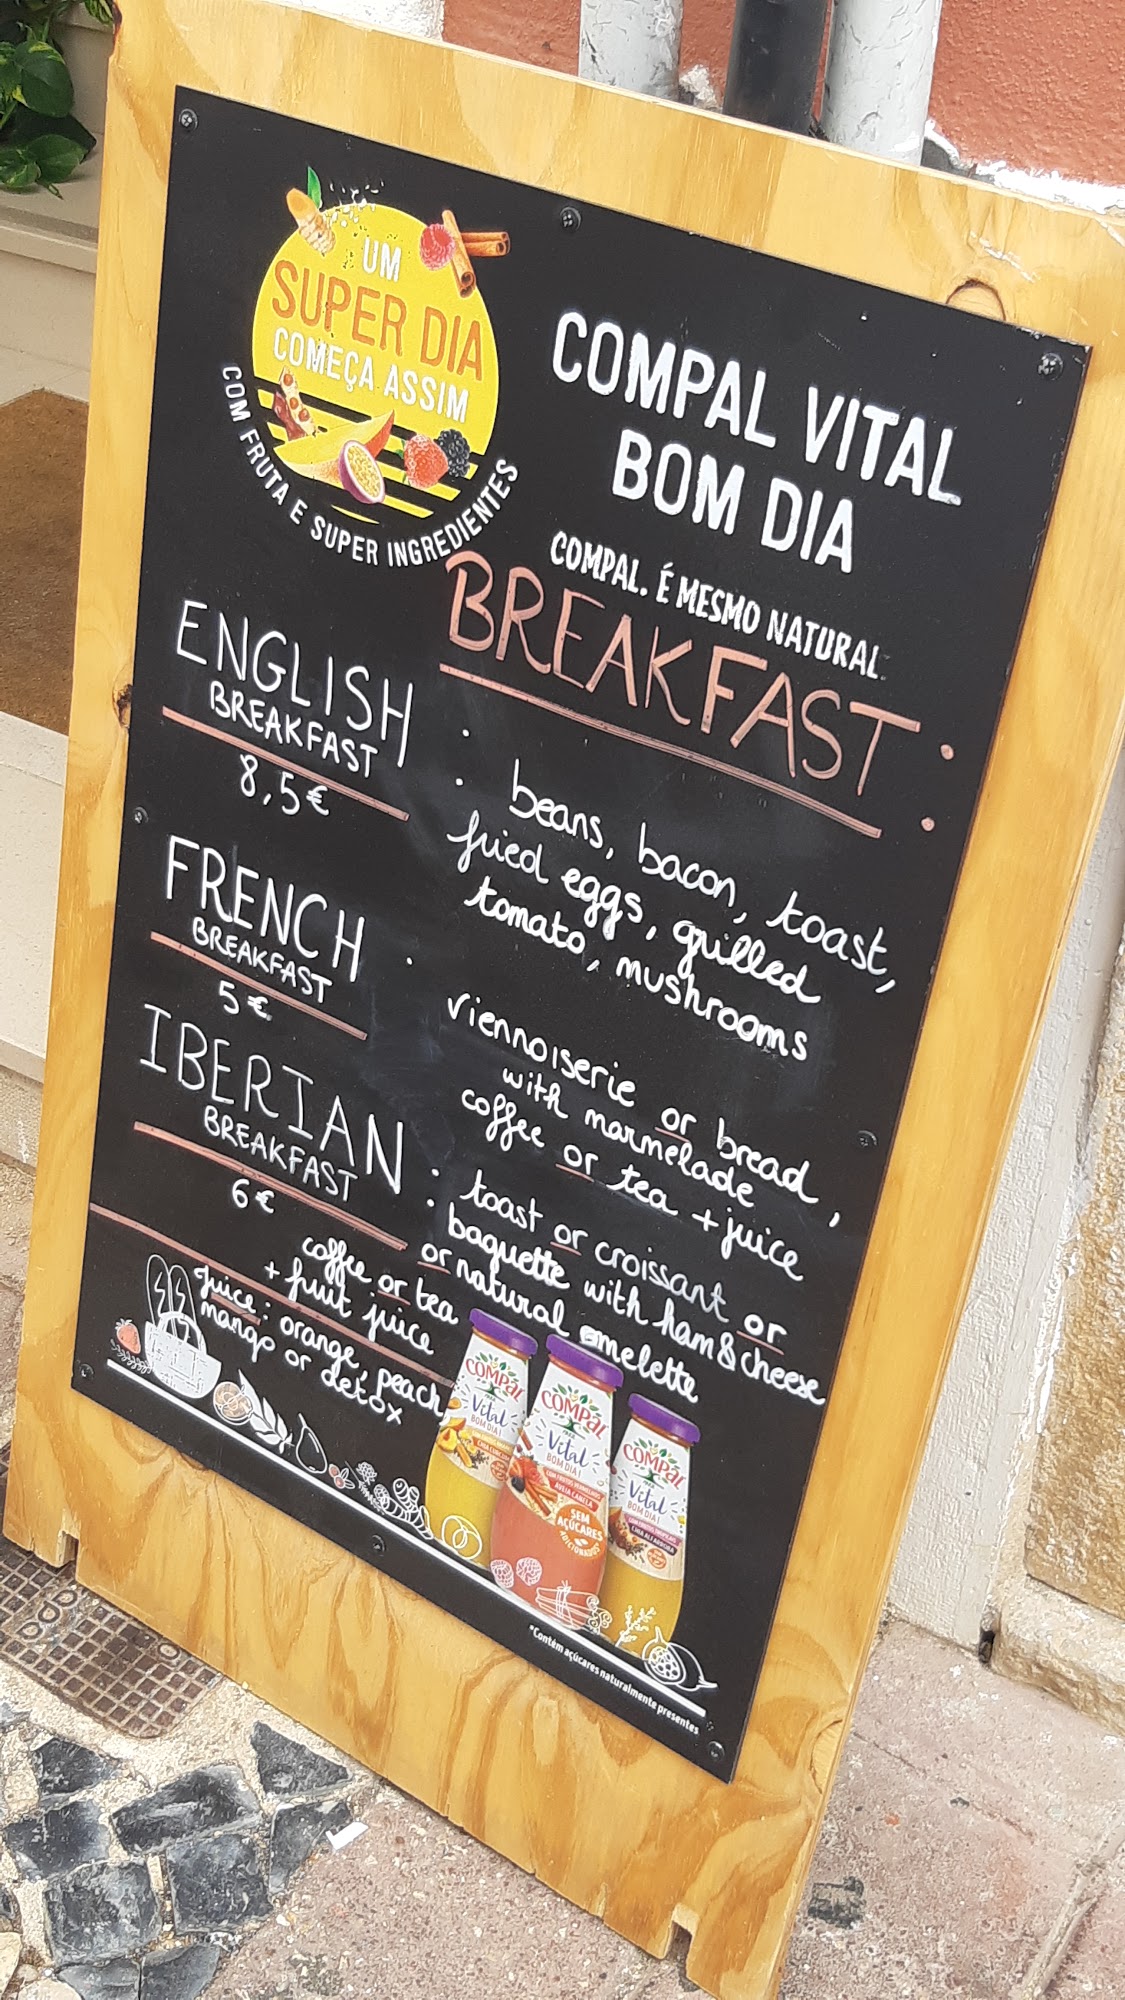 UM
SUPER DIA
COMEÇA ASSIM
COM FRUTA E SUPER INGREDIENTES
COMPAL VITAL
BOM DIA
COMPAL. É MESMO NATURAL.
BREAKFAST :
ENGLISH
BREAKFAST
8,5€
: beans, bacon, toast,
fried eggs, grilled
tomato, mushrooms
FRENCH
BREAKFAST
5€
. viennoiserie or bread,
with marmelade
coffee or tea + juice
IBERIAN
BREAKFAST
6€
: toast or croissant or
baguette with ham&cheese
or natural omelette
coffee or tea
+ fruit juice
juice: orange, peach
mango or detox
COMPAL
Vital
BOM DIA!
COMPAL
Vital
BOM DIA!
AVEIA CANELA
SEM
AÇÚCARES
ADICIONADOS*
COMPAL
Vital
BOM DIA!
CHIA ALFARROBA
*Contém açúcares naturalmente presentes